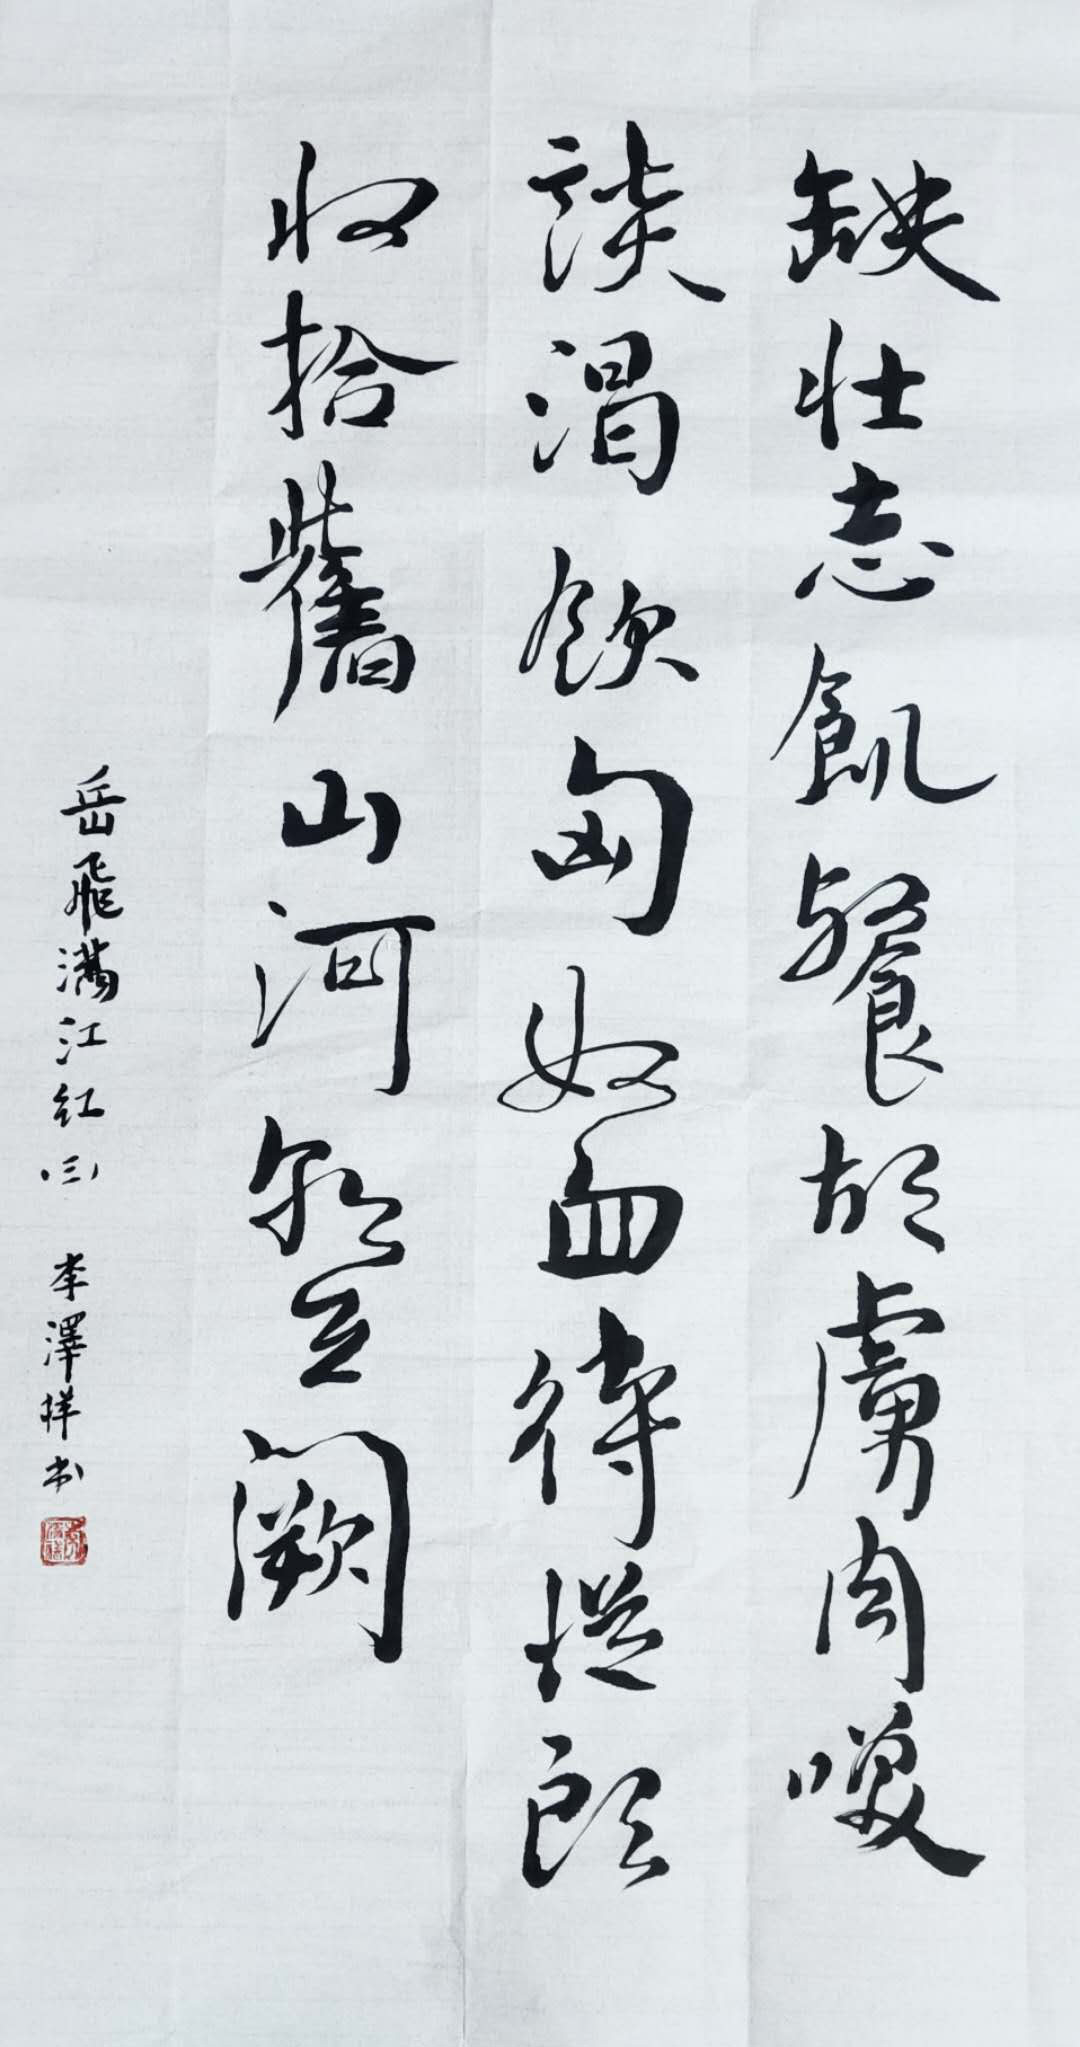 缺壮志飢餐胡虜肉咲
談渴飲匈奴血待從頭
收拾舊山河朝天闕
岳飛滿江紅（三） 李澤祥书